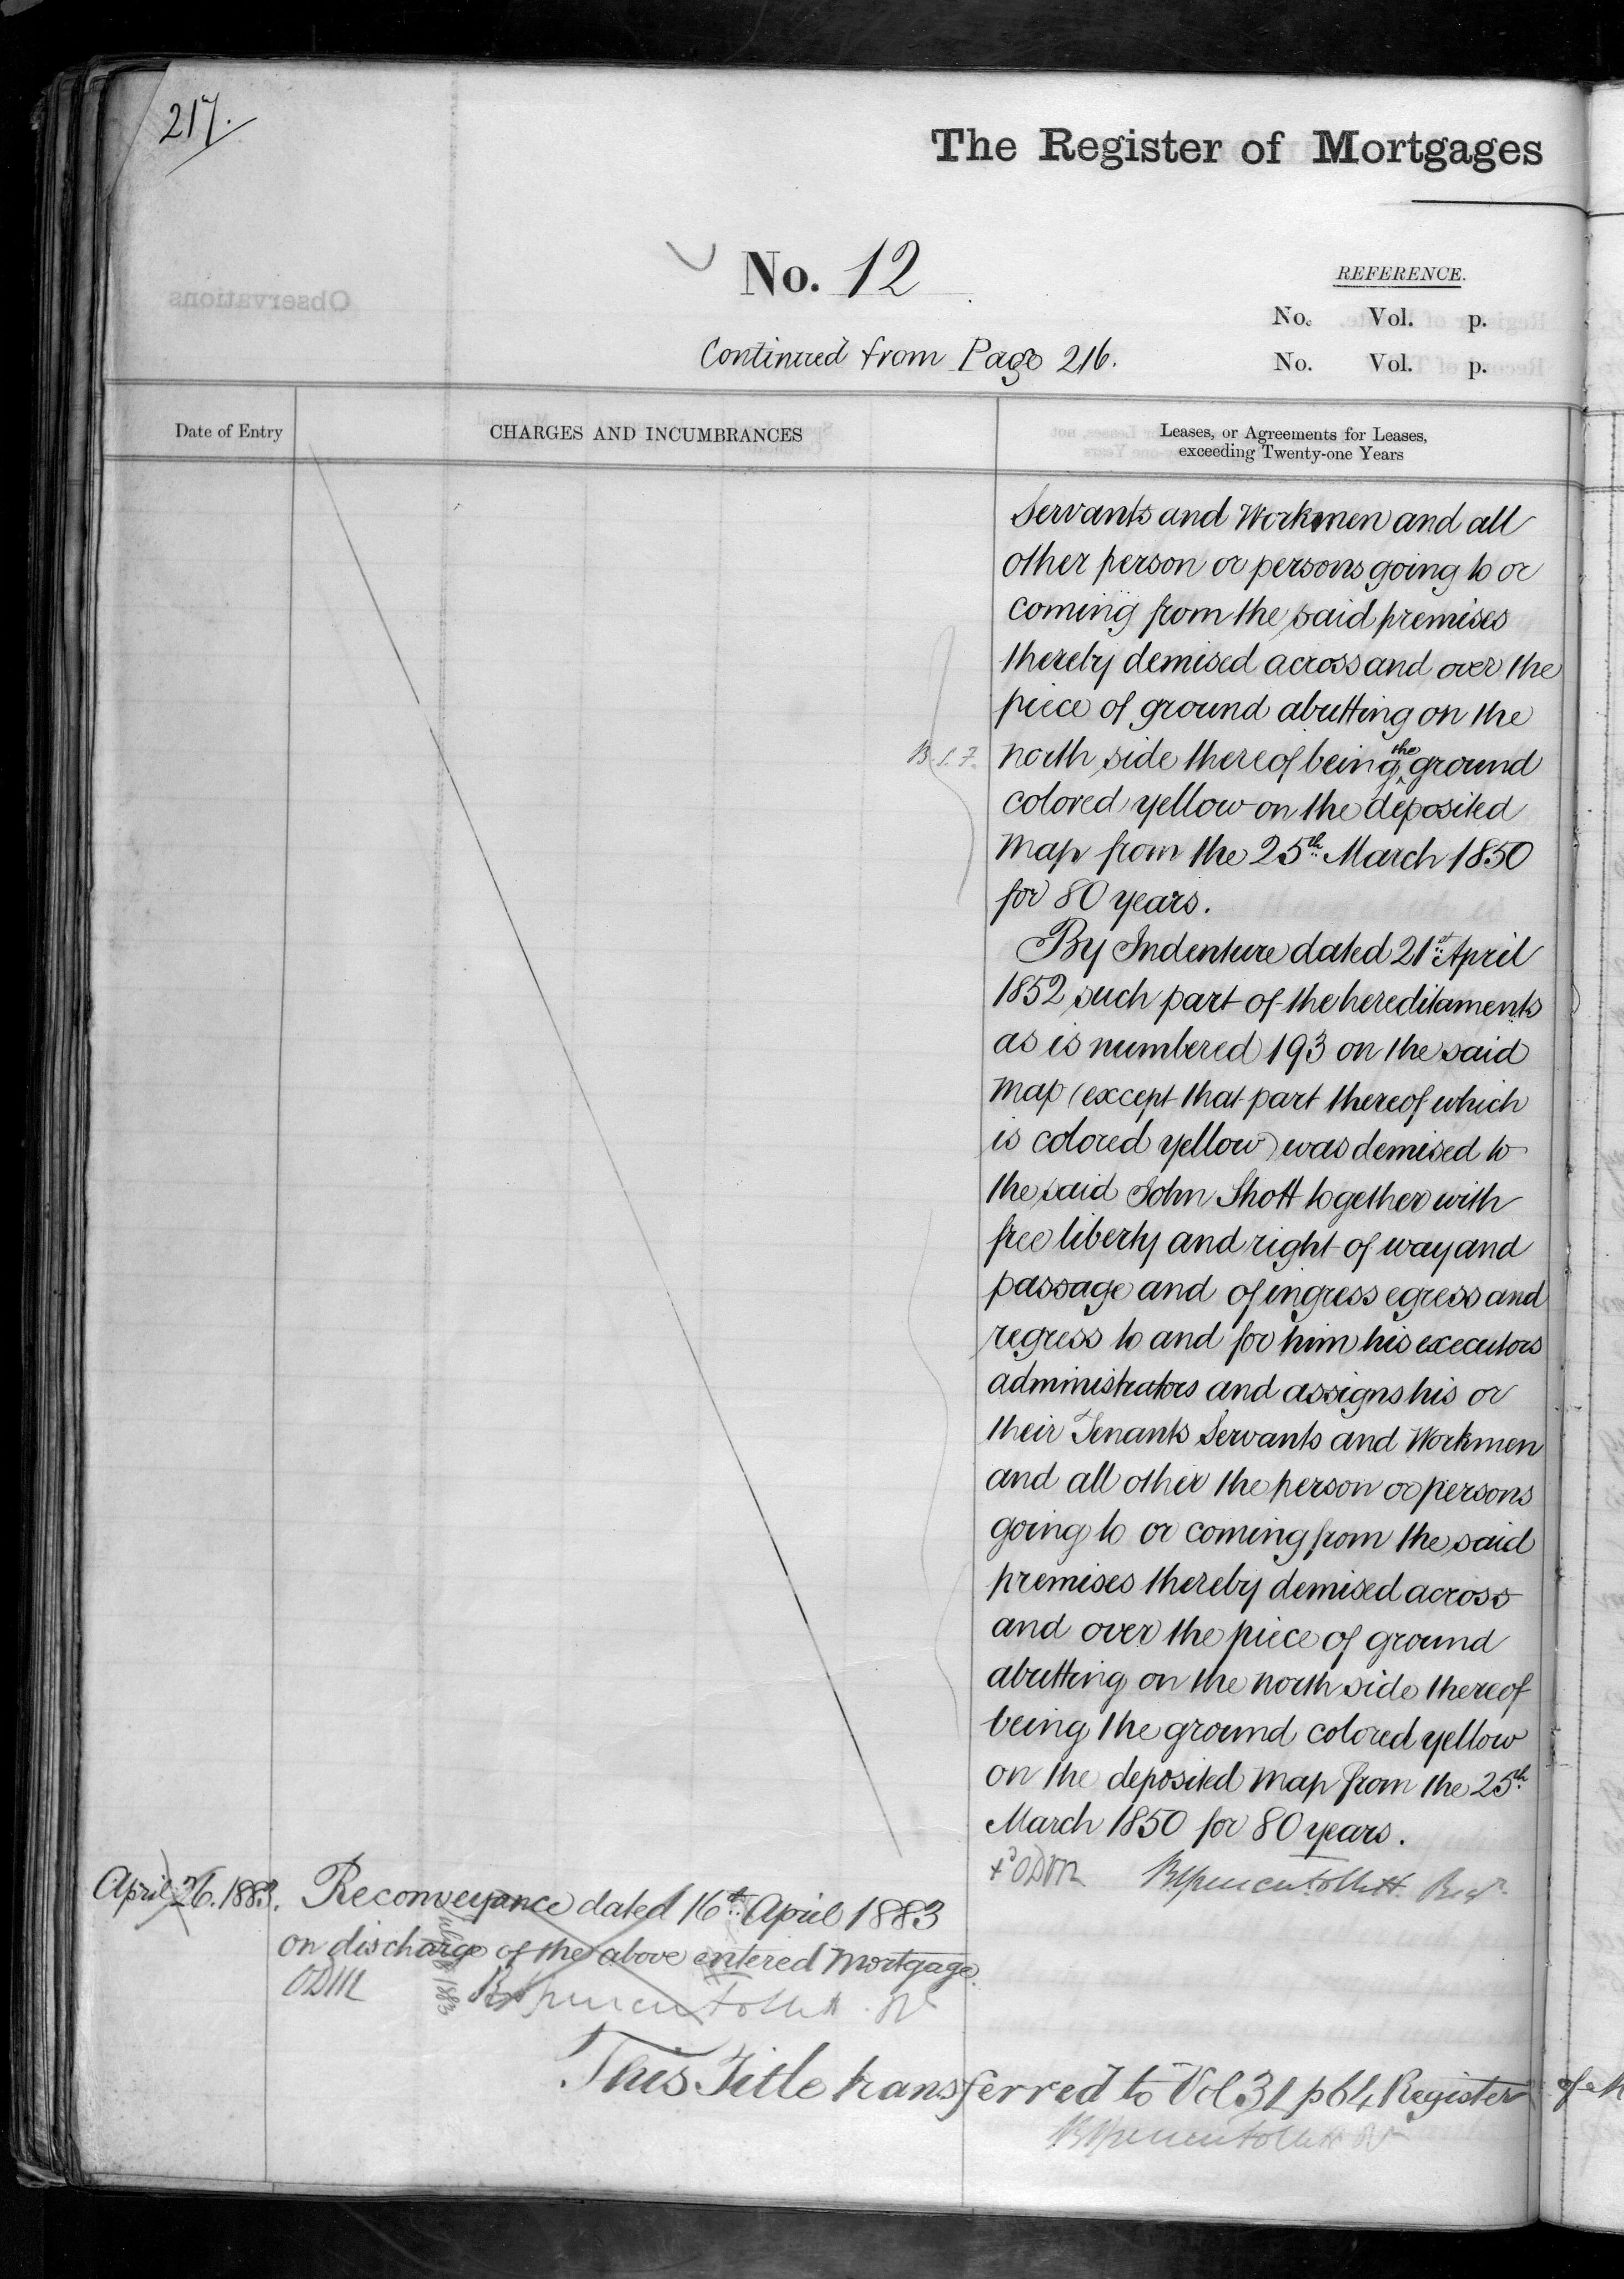 217.
The Register of Mortgages
No. 12
REFERENCE.
No. Vol. p.
Continued from Page 216.
No. Vol. p.
Date of Entry
CHARGES AND INCUMBRANCES
Leases, or Agreements for Leases,
exceeding Twenty-one Years
Servants and Workmen and all
other person or persons going to or
coming from the said premises
thereby demised across and over the
piece of ground abutting on the
north side thereof being the ground
colored yellow on the deposited
map from the 25th March 1850
for 80 years.
By Indenture dated 21st April
1852 such part of the hereditaments
as is numbered 193 on the said
map (except that part thereof which
is colored yellow) was demised to
the said John Shott together with
free liberty and right of way and
passage and of ingress egress and
regress to and for him his executors
administrators and assigns his or
their Tenants Servants and Workmen
and all other the person or persons
going to or coming from the said
premises thereby demised across
and over the piece of ground
abutting on the north side thereof
being the ground colored yellow
on the deposited map from the 25th
March 1850 for 80 years.
April 26. 1883. Reconveyance dated 16th April 1883
on discharge of the above entered Mortgage.
ODM
This Title transferred to Vol 31 p 64 Register of